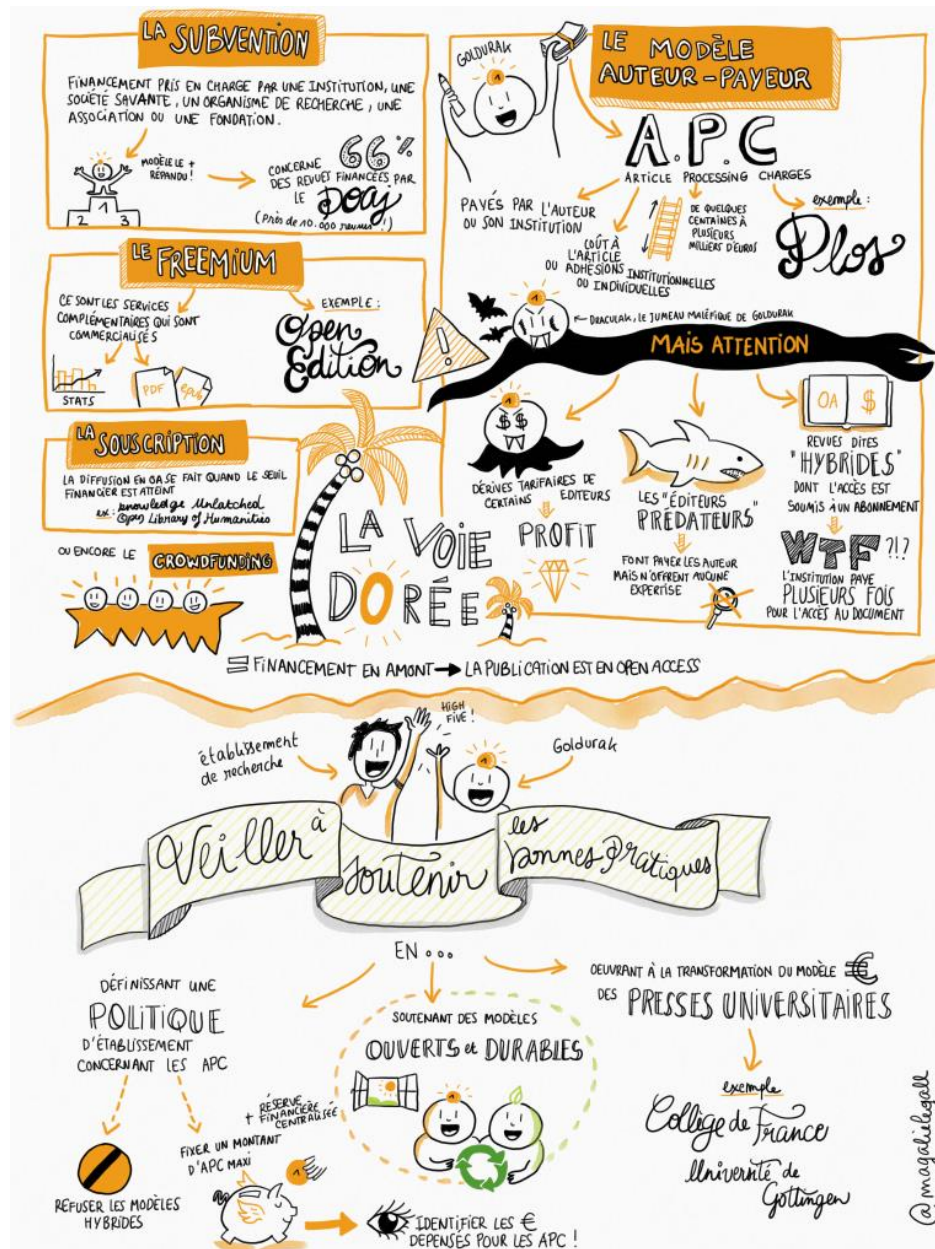 LA SUBVENTION
FINANCEMENT PRIS EN CHARGE PAR UNE INSTITUTION, UNE
SOCIÉTÉ SAVANTE, UN ORGANISME DE RECHERCHE, UNE
ASSOCIATION OU UNE FONDATION.
MODÈLE LE +
RÉPANDU !
2 1 3
CONCERNE 66%
DES REVUES FINANCÉES PAR
LE Doaj
(Près de 10.000 revues !)
LE FREEMIUM
CE SONT LES SERVICES
COMPLÉMENTAIRES QUI SONT
COMMERCIALISÉS
STATS
PDF
epub
EXEMPLE :
Open
Edition
LA
SOUSCRIPTION
LA DIFFUSION EN OA SE FAIT QUAND LE SEUIL
FINANCIER EST ATTEINT
ex : Knowledge Unlatched
Open Library of Humanities
OU ENCORE LE CROWDFUNDING
GOLDURAK
1
LE MODÈLE
AUTEUR-PAYEUR
A.P.C
ARTICLE PROCESSING CHARGES
PAYÉS PAR L'AUTEUR
OU SON INSTITUTION
COÛT À
L'ARTICLE
OU ADHÉSIONS INSTITUTIONNELLES
OU INDIVIDUELLES
DE QUELQUES
CENTAINES À
PLUSIEURS
MILLIERS D'EUROS
exemple :
Plos
1
DRACULAK, LE JUMEAU MALÉFIQUE DE GOLDURAK
!
MAIS ATTENTION
1
$ $
DÉRIVES TARIFAIRES DE
CERTAINS EDITEURS
PROFIT
LES "ÉDITEURS
PRÉDATEURS"
FONT PAYER LES AUTEUR
MAIS N'OFFRENT AUCUNE
EXPERTISE
OA $
REVUES DITES
"HYBRIDES"
DONT L'ACCÈS EST
SOUMIS À UN ABONNEMENT
WTF ?!?
L'INSTITUTION PAYE
PLUSIEURS FOIS
POUR L'ACCÈS AU DOCUMENT
LA VOIE
DORÉE
= FINANCEMENT EN AMONT → LA PUBLICATION EST EN OPEN ACCESS
HIGH
FIVE !
établissement
de recherche
Goldurak
1
Veiller à
soutenir
les
bonnes pratiques
EN ...
DÉFINISSANT UNE
POLITIQUE
D'ÉTABLISSEMENT
CONCERNANT LES APC
REFUSER LES MODÈLES
HYBRIDES
FIXER UN MONTANT
D'APC MAXI
+ RÉSERVE
FINANCIÈRE
CENTRALISÉE
1
IDENTIFIER LES €
DEPENSÉS POUR LES APC !
SOUTENANT DES MODÈLES
OUVERTS et DURABLES
1
OEUVRANT À LA TRANSFORMATION DU MODÈLE €
DES PRESSES UNIVERSITAIRES
exemple
Collège de France
Université de
Göttingen
@magalielegall